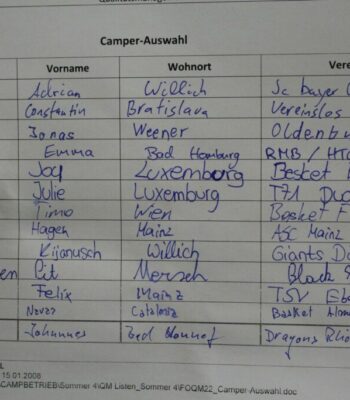 Camper-Auswahl
Vorname Wohnort Vere
Adrian Willich Sc bayer
Constantin Bratislava Vereinslos
Jonas Weener Oldenbu
Emma Bad Homburg RMB / HTG
Joy Luxembourg Basket
Julie Luxemburg T71 Dud
Timo Wien Basket F
Hagen Mainz ASC Mainz
Kijanusch Willich Giants Dü
en Pit Mersch Black S
Felix Mainz TSV Eb
Catalonia Basket
Johannes Bad Honnef Dragons Rhö
L
15.01.2008
CAMPBETRIEB\Summer 4\QM Listen_Sommer 4\FOQM22_Camper-Auswahl.doc